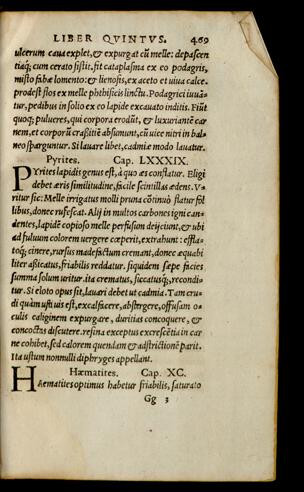 LIBER QVINTVS. 469
ulcerum caua explet, & expurgat cũ melle: depascen
tiaq́; cum cerato sistit. fit cataplasma ex eo podagris,
misto fabæ lomento: & lienosis, ex aceto et uiua calce.
prodest flos ex melle phthisicis linctu. Podagrici iuuã
tur, pedibus in solio ex eo lapide excauato inditis. Fiũt
quoq́; pulueres, qui corpora erodũt, & luxuriantẽ car
nem, et corporũ crassitiẽ absumunt, cũ uice nitri in bal
neo sparguntur. Si lauare libet, cadmiæ modo lauatur.
Pyrites. Cap. LXXXIX.
PYrites lapidis genus est, à quo æs conflatur. Eligi
debet æris similitudine, facile scintillas ædens. Vs
ritur sic: Melle irrigatus molli pruna cõtinuò flatur fol
libus, donec rufescat. Alij in multos carbones igni can
dentes, lapidẽ copioso melle perfusum deijciunt, & ubi
ad fuluum colorem uergere cœperit, extrahunt: efflaq
toq́;, cinere, rursus madefactum cremant, donec æquabi
liter assiccatus, friabilis reddatur. siquidem sæpe facies
summa solum uritur. ita crematus, siccatusq́;, recondi=
tur. Si eloto opus sit, lauari debet ut cadmia. Tam cru=
di quàm usti uis est, excalfacere, abstergere, offusam o=
culis caliginem expurgare, duritias concoquere, &
concoctas discutere. resina exceptus excrescẽtia in car
ne cohibet, sed calorem quendam & adstrictionẽ parit.
Ita ustum nonnulli diphryges appellant.
Hæmatites. Cap. XC.
HHæmatites optimus habetur friabilis, saturato
Gg 3